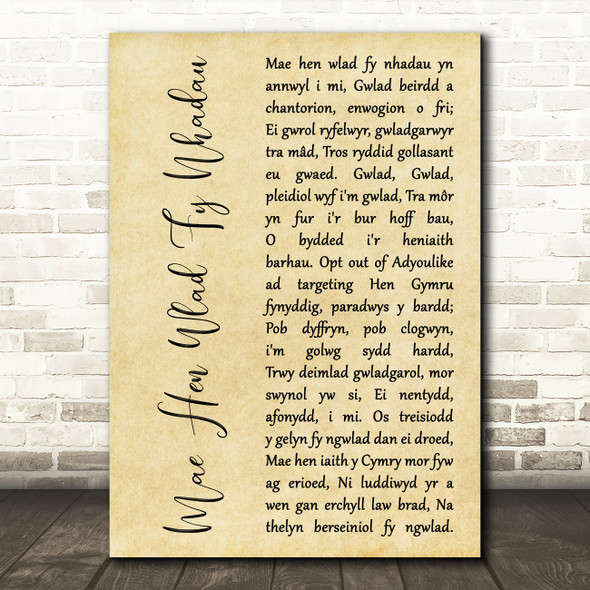 Mae Hen Wlad Fy Nhadau
Mae hen wlad fy nhadau yn
annwyl i mi, Gwlad beirdd a
chantorion, enwogion o fri;
Ei gwrol ryfelwyr, gwladgarwyr
tra mâd, Tros ryddid gollasant
eu gwaed. Gwlad, Gwlad,
pleidiol wyf i'm gwlad, Tra môr
yn fur i'r bur hoff bau,
O bydded i'r heniaith
barhau. Opt out of Adyoulike
ad targeting Hen Gymru
fynyddig, paradwys y bardd;
Pob dyffryn, pob clogwyn,
i'm golwg sydd hardd,
Trwy deimlad gwladgarol, mor
swynol yw si, Ei nentydd,
afonydd, i mi. Os treisiodd
y gelyn fy ngwlad dan ei droed,
Mae hen iaith y Cymry mor fyw
ag erioed, Ni luddiwyd yr a
wen gan erchyll law brad, Na
thelyn berseiniol fy ngwlad.